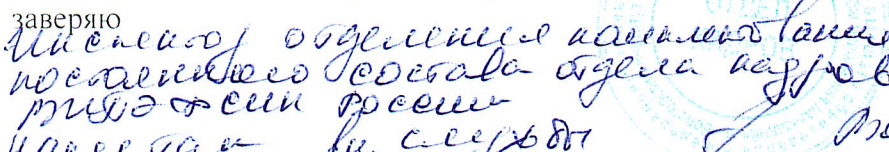 заверяю
Инспектор отделения комплектования
постоянного состава отдела кадров
ФСИН России
службы